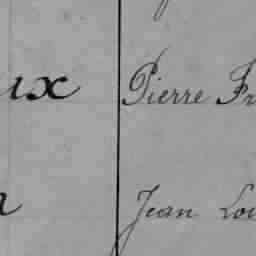 ux Pierre Fr
Jean Lou